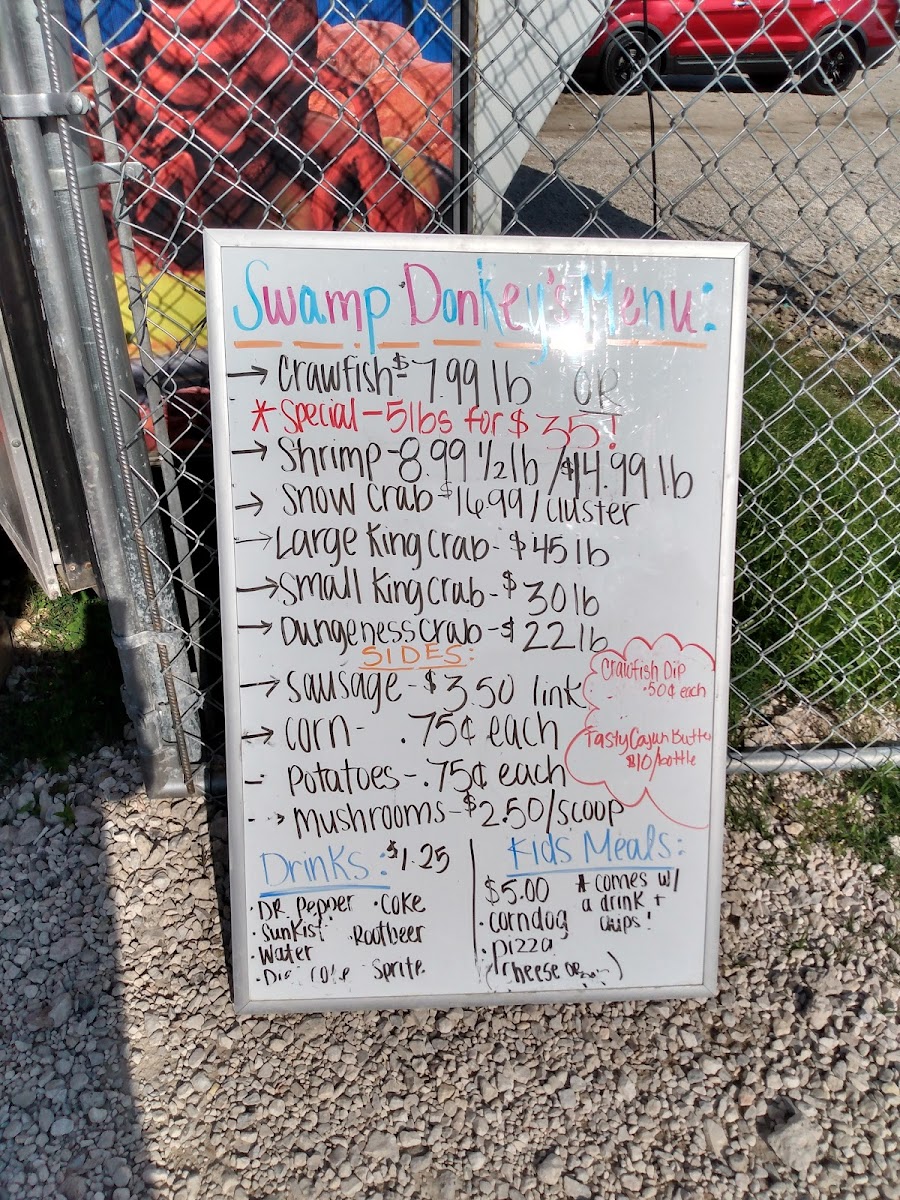 Swamp Donkey's Menu:
→ Crawfish $7.99 lb OR
* Special - 5lbs for $35!
→ Shrimp - 8.99 ½ lb / $14.99 lb
→ Snow Crab $16.99 / Cluster
→ Large King Crab - $45 lb
→ Small King Crab - $30 lb
→ Dungeness Crab - $22 lb
SIDES:
→ Sausage - $3.50 link
→ Corn - .75¢ each
- Potatoes - .75¢ each
-→ Mushrooms - $2.50/scoop
Crawfish Dip
.50¢ each
Tasty Cajun Butter
$10/bottle
Drinks: $1.25
· DR. Pepper · Coke
· Sunkist Rootbeer
· Water
Coke Sprite
Kids Meals:
$5.00 * comes w/
a drink +
chips!
· corndog
· pizza
(Cheese OR